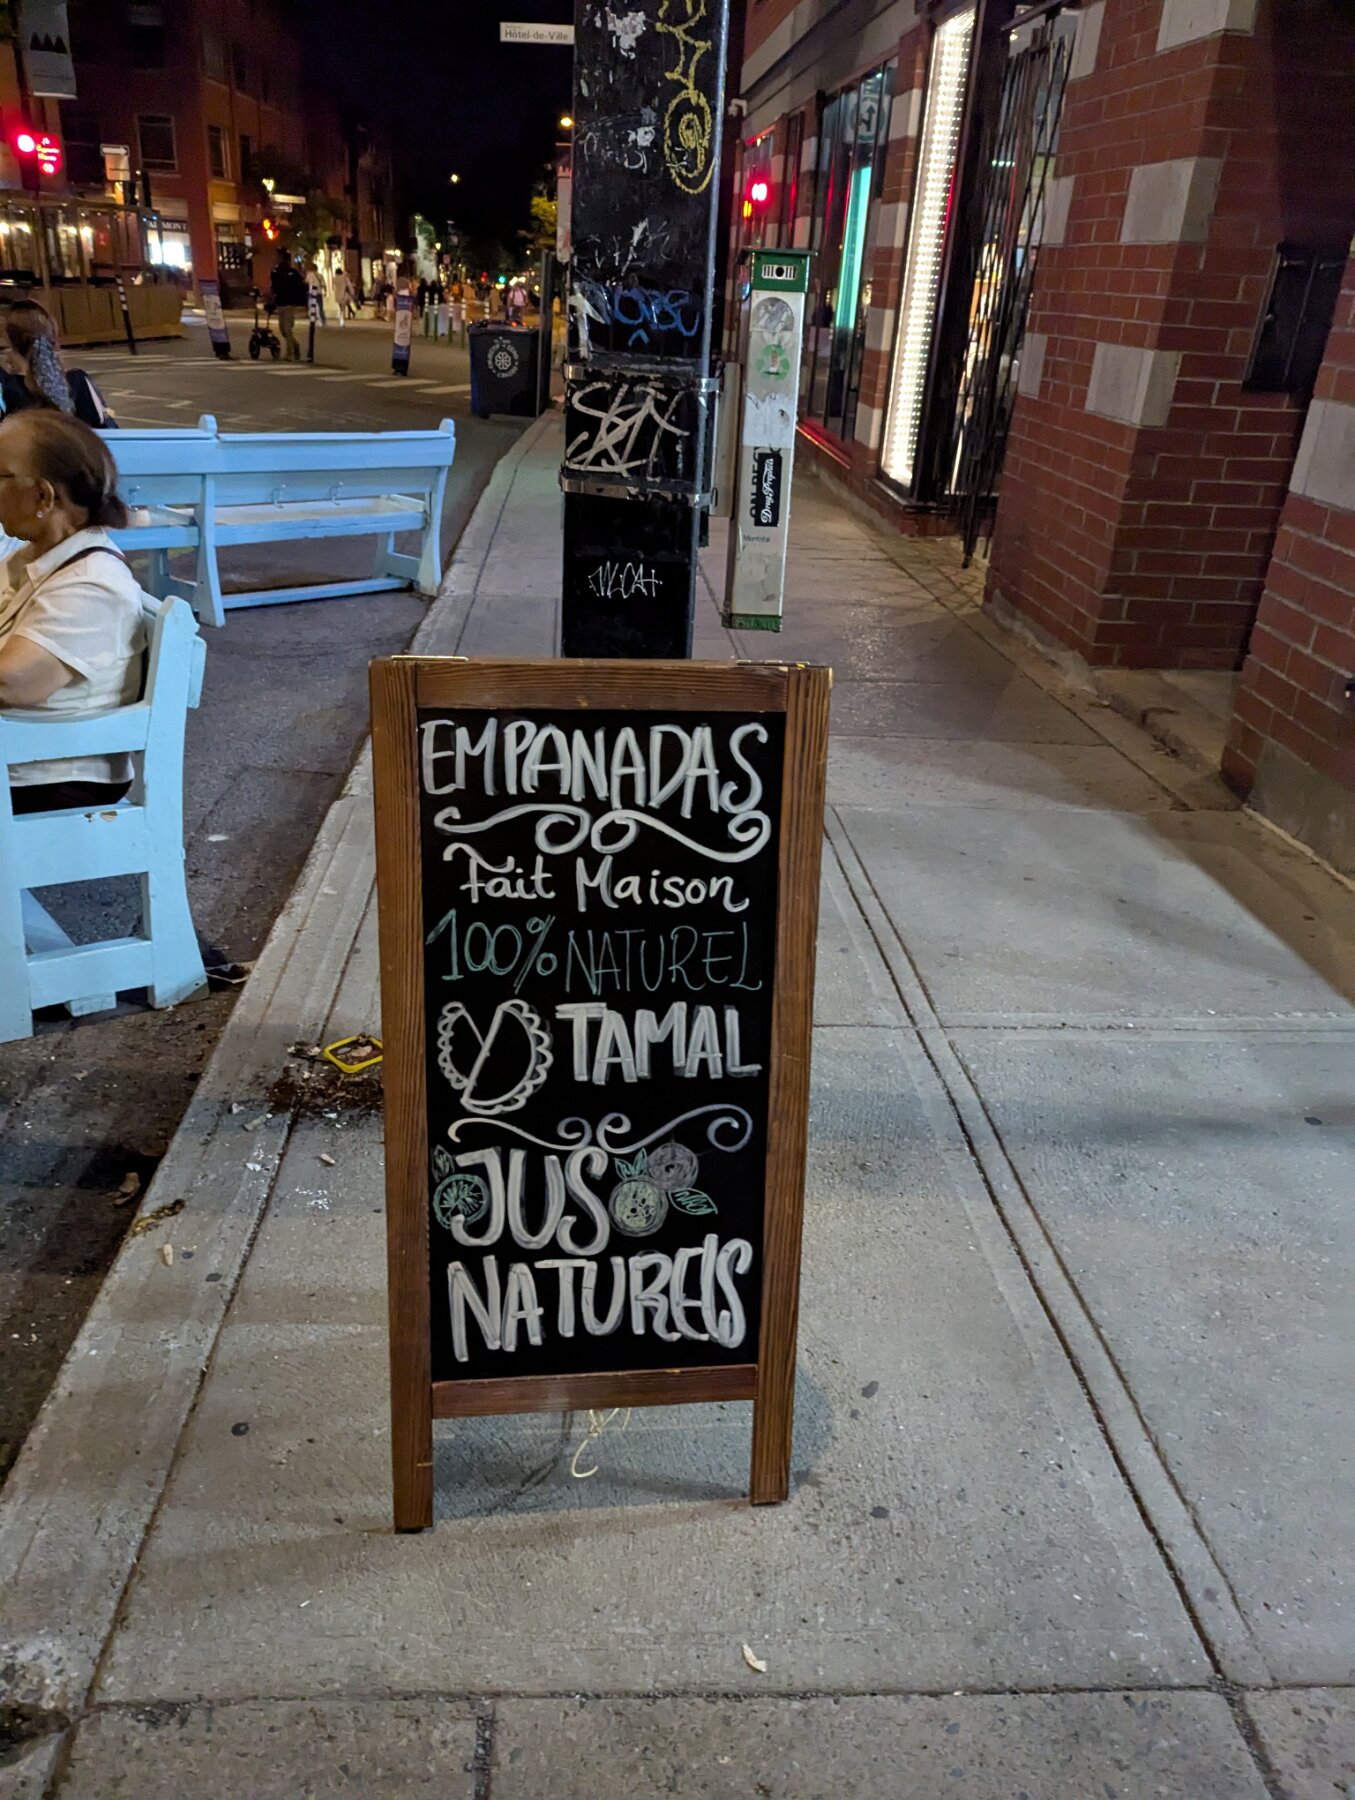 Hôtel-de-Ville
EMPANADAS
Fait Maison
100% NATUREL
TAMAL
JUS
NATURELS
DrugPropals
Montréal